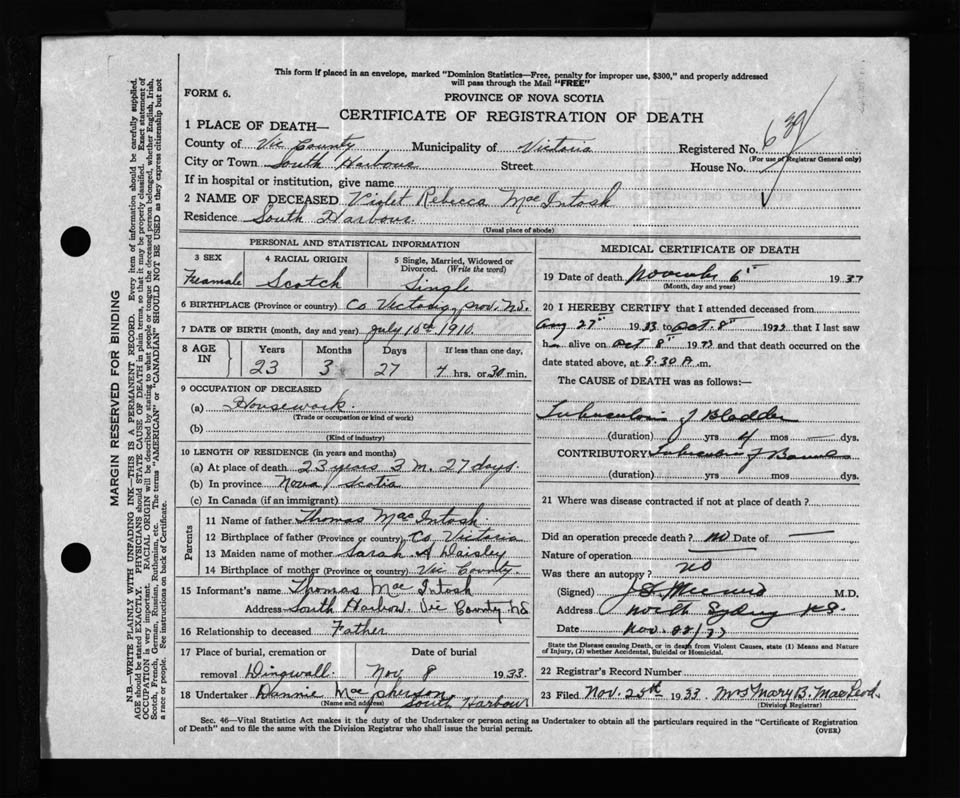 This form if placed in an envelope, marked "Dominion Statistics—Free, penalty for improper use, $300," and properly addressed
will pass through the Mail "FREE"
FORM 6.
PROVINCE OF NOVA SCOTIA
CERTIFICATE OF REGISTRATION OF DEATH
1 PLACE OF DEATH—
County of Vic County Municipality of Victoria Registered No. 639
(For use of Registrar General only)
City or Town South Harbour Street House No.
If in hospital or institution, give name
2 NAME OF DECEASED Violet Rebecca MacIntosh
Residence South Harbour
(Usual place of abode)
PERSONAL AND STATISTICAL INFORMATION
3 SEX 4 RACIAL ORIGIN 5 Single, Married, Widowed or Divorced. (Write the word)
Feamale Scotch Single
6 BIRTHPLACE (Province or country) Co Victoria, prov. N.S.
7 DATE OF BIRTH (month, day and year) July 10th 1910
8 AGE IN Years Months Days If less than one day,
23 3 27 4 hrs. or 30 min.
9 OCCUPATION OF DECEASED
(a) Housework
(Trade or occupation or kind of work)
(b)
(Kind of industry)
10 LENGTH OF RESIDENCE (in years and months)
(a) At place of death 23 years 3 m. 27 days
(b) In province Nova Scotia
(c) In Canada (if an immigrant)
Parents
11 Name of father Thomas MacIntosh
12 Birthplace of father (Province or country) Co Victoria
13 Maiden name of mother Sarah A Daisley
14 Birthplace of mother (Province or country) Vic County
15 Informant's name Thomas MacIntosh
Address South Harbor. Vic County N S
16 Relationship to deceased Father
17 Place of burial, cremation or removal Dingwall Date of burial Nov 8 1933
18 Undertaker Dannie Macpherson South Harbour
(Name and address)
MEDICAL CERTIFICATE OF DEATH
19 Date of death November 6th 1933
(Month, day and year)
20 I HEREBY CERTIFY that I attended deceased from
Aug 27th 1933 to Oct. 8th 1933 that I last saw
h alive on Oct 8th 1933 and that death occurred on the
date stated above, at 9.30 A.m.
The CAUSE of DEATH was as follows:—
Tuberculosis of Bladder
(duration) yrs 4 mos — dys.
CONTRIBUTORY Tuberculosis of Bowels
(duration) yrs mos dys.
21 Where was disease contracted if not at place of death?
Did an operation precede death? no Date of —
Nature of operation
Was there an autopsy? no
(Signed) M.D.
Address North Sydney N S.
Date Nov. 22/33
State the Disease causing Death, or in death from Violent Causes, state (1) Means and Nature
of Injury, (2) whether Accidental, Suicidal or Homicidal.
22 Registrar's Record Number
23 Filed Nov. 25th 1933. Mrs Mary B. MacLeod
(Division Registrar)
Sec. 46—Vital Statistics Act makes it the duty of the Undertaker or person acting as Undertaker to obtain all the particulars required in the "Certificate of Registration
of Death" and to file the same with the Division Registrar who shall issue the burial permit.
(OVER)
MARGIN RESERVED FOR BINDING
N.B.—WRITE PLAINLY WITH UNFADING INK—THIS IS A PERMANENT RECORD. Every item of information should be carefully supplied.
AGE should be stated EXACTLY. PHYSICIANS should STATE CAUSE OF DEATH in plain terms, so that it may be properly classified. Exact statement of
OCCUPATION is very important. RACIAL ORIGIN will be described by stating to what people or tongue the deceased person belonged, whether English, Irish,
Scotch, French, German, Russian, Ruthenian, etc. The terms "AMERICAN" or "CANADIAN" SHOULD NOT BE USED as they express citizenship but not
a race or people. See instructions on back of Certificate.